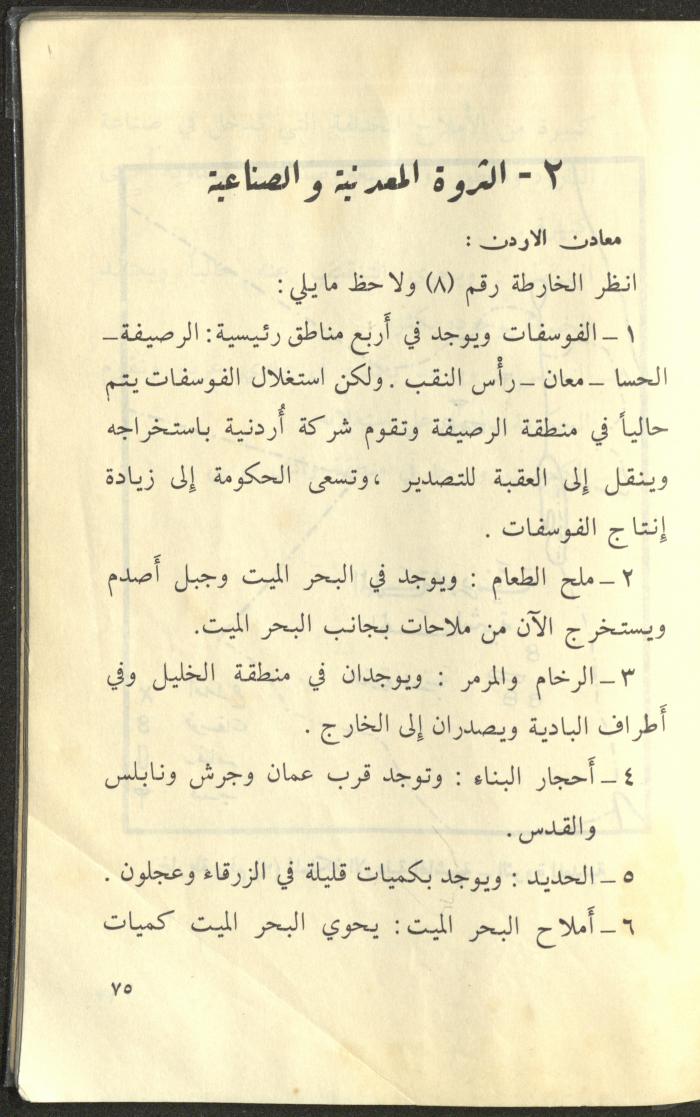 ٢ - الثروة المعدنية و الصناعية
معادن الاردن :
انظر الخارطة رقم (٨) ولاحظ مايلي :
١ – الفوسفات ويوجد في أَربع مناطق رئيسية : الرصيفة –
الحسا – معان – رأْس النقب . ولكن استغلال الفوسفات يتم
حالياً في منطقة الرصيفة وتقوم شركة أُردنية باستخراجه
وينقل إِلى العقبة للتصدير ، وتسعى الحكومة إِلى زيادة
إِنتاج الفوسفات .
٢ – ملح الطعام : ويوجد في البحر الميت وجبل أَصدم
ويستخرج الآن من ملاحات بجانب البحر الميت.
٣ – الرخام والمرمر : ويوجدان في منطقة الخليل وفي
أَطراف البادية ويصدران إِلى الخارج .
٤ – أَحجار البناء : وتوجد قرب عمان وجرش ونابلس
والقدس .
٥ – الحديد : ويوجد بكميات قليلة في الزرقاء وعجلون .
٦ – أَملاح البحر الميت : يحوي البحر الميت كميات
٧٥